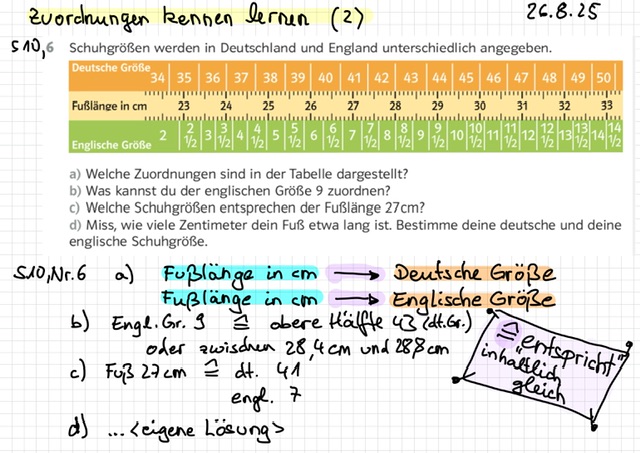 Zuordnungen kennen lernen (2) 26.8.25
S10,6 Schuhgrößen werden in Deutschland und England unterschiedlich angegeben.
Deutsche Größe 34 35 36 37 38 39 40 41 42 43 44 45 46 47 48 49 50
Fußlänge in cm 23 24 25 26 27 28 29 30 31 32 33
Englische Größe 2 2 1/2 3 3 1/2 4 4 1/2 5 5 1/2 6 6 1/2 7 7 1/2 8 8 1/2 9 9 1/2 10 10 1/2 11 11 1/2 12 12 1/2 13 13 1/2 14 14 1/2
a) Welche Zuordnungen sind in der Tabelle dargestellt?
b) Was kannst du der englischen Größe 9 zuordnen?
c) Welche Schuhgrößen entsprechen der Fußlänge 27cm?
d) Miss, wie viele Zentimeter dein Fuß etwa lang ist. Bestimme deine deutsche und deine
englische Schuhgröße.
S10,Nr.6 a) Fußlänge in cm → Deutsche Größe
Fußlänge in cm → Englische Größe
b) Engl. Gr. 9 ≙ obere Hälfte 43 (dt.Gr.)
oder zwischen 28,4cm und 28,8cm
c) Fuß 27cm ≙ dt. 41
engl. 7
d) ...<eigene Lösung>
≙ "entspricht"
inhaltlich
gleich